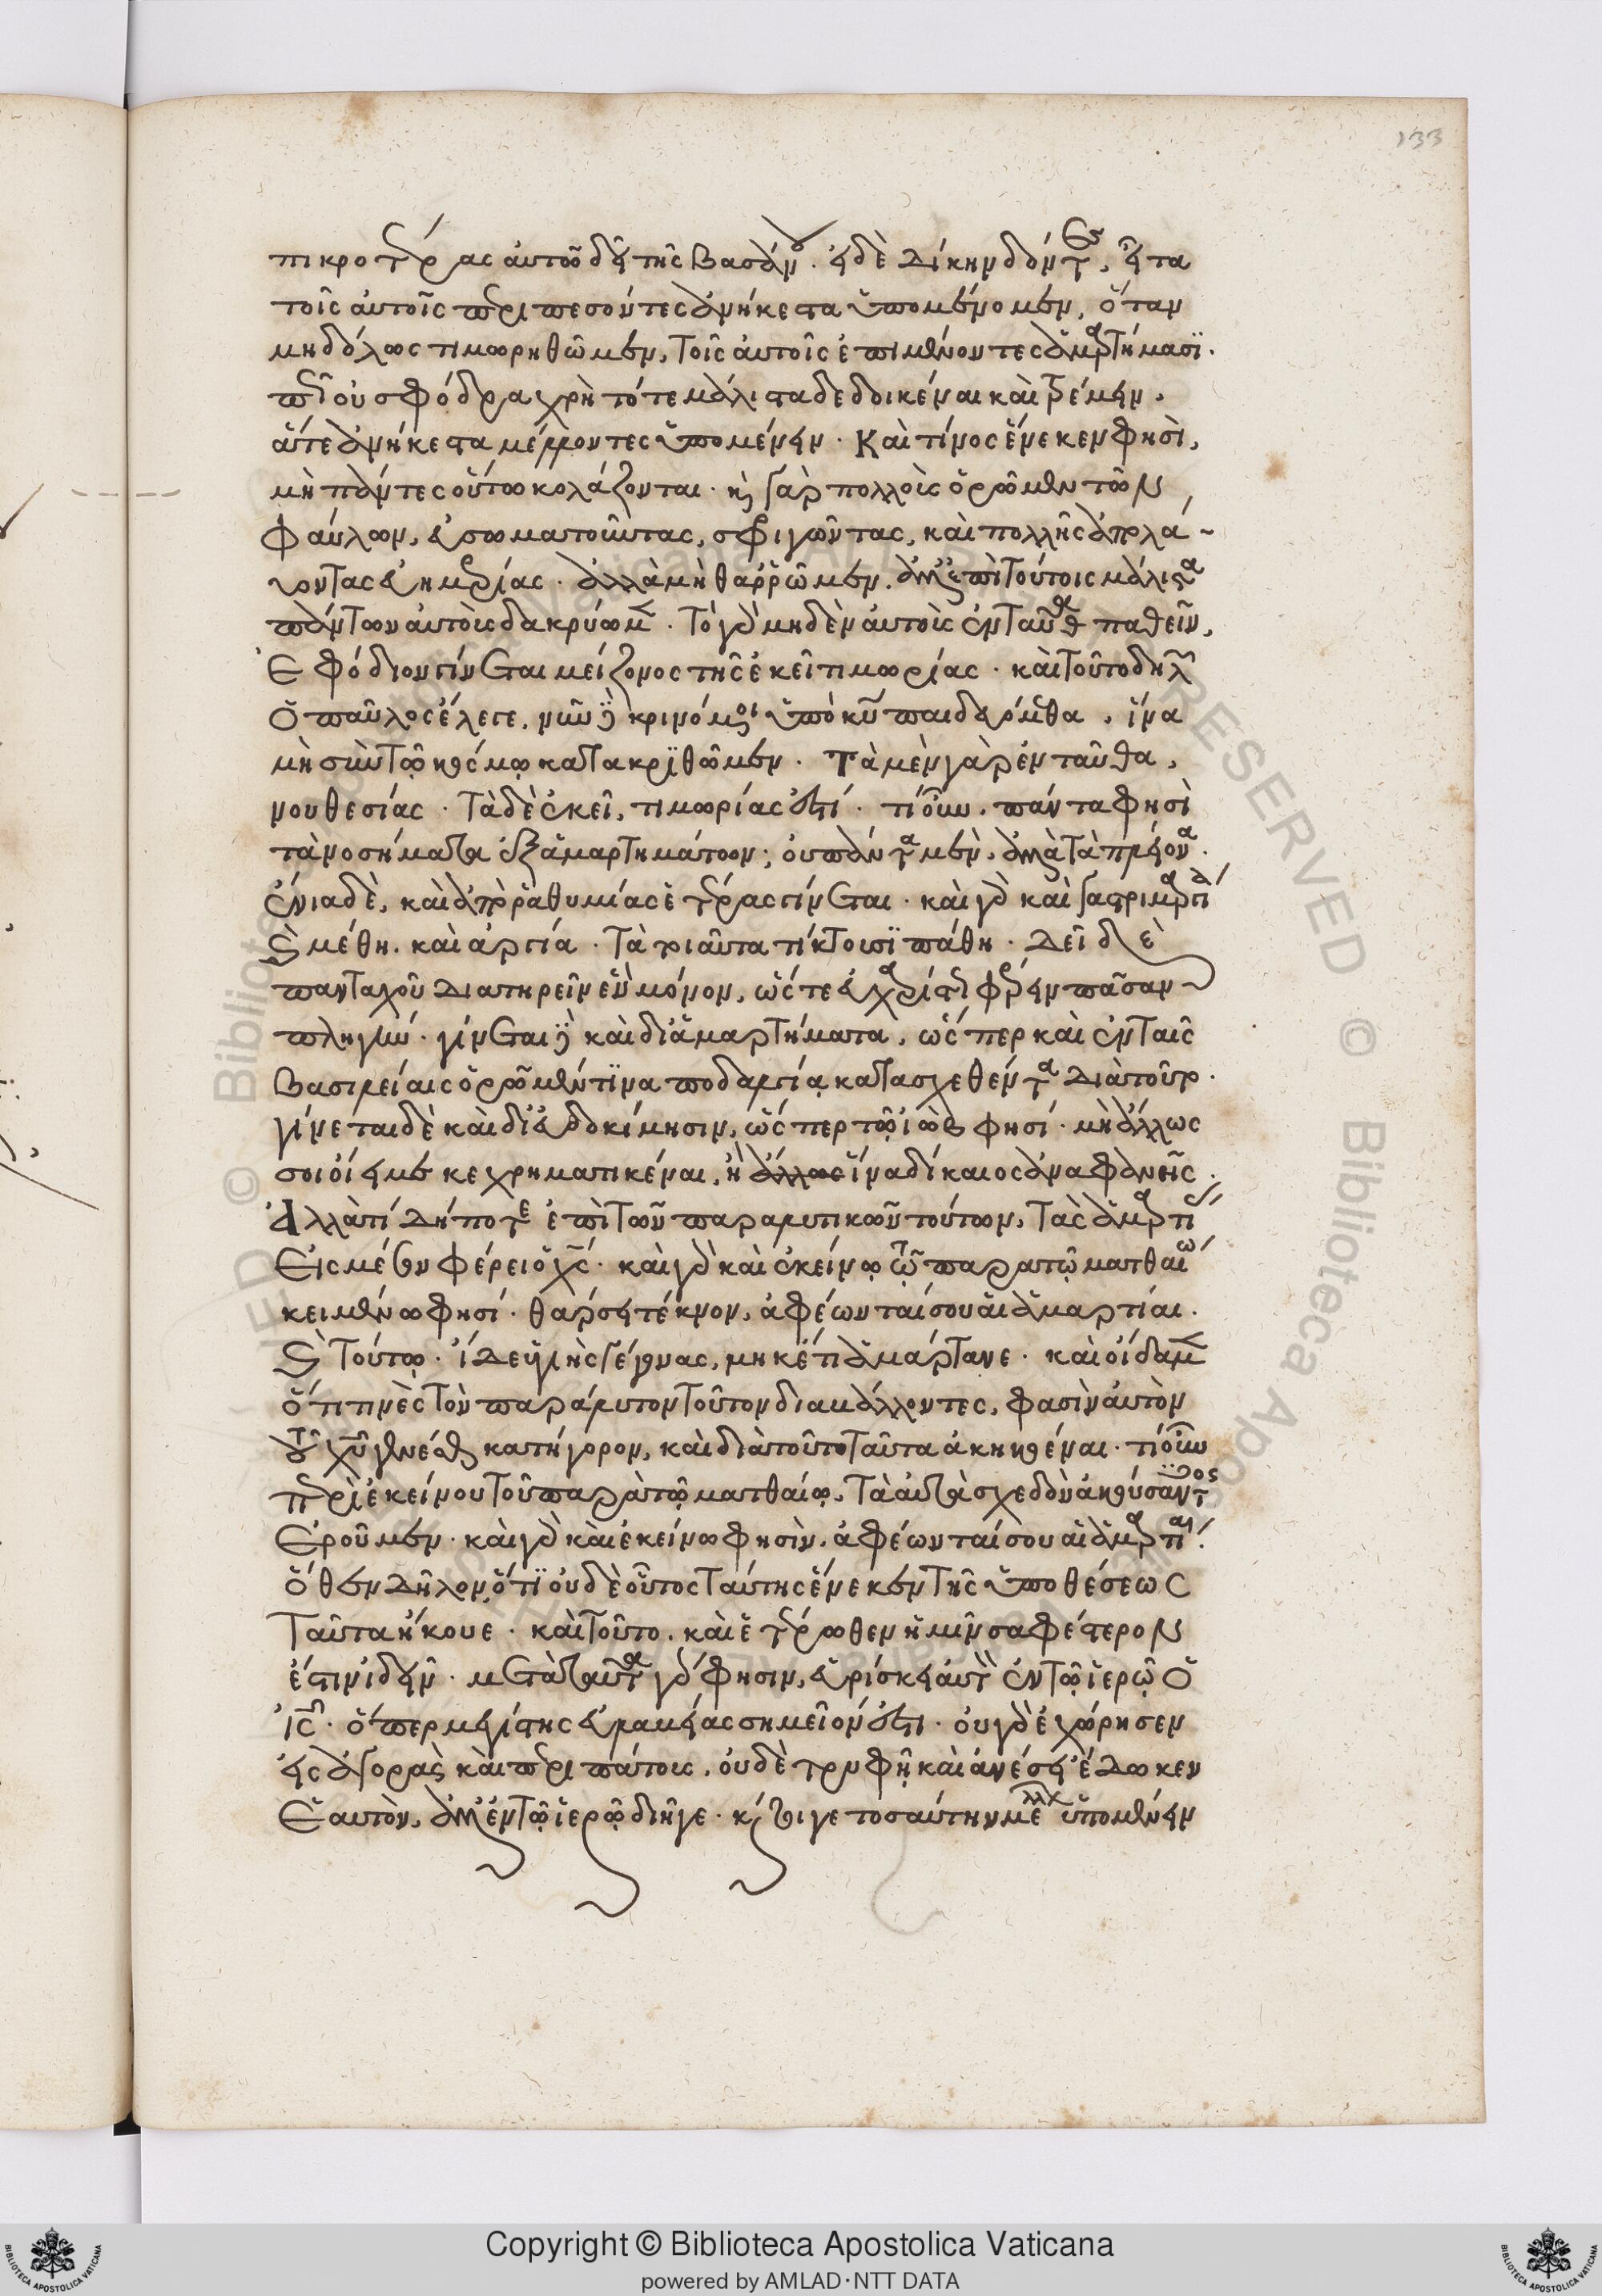 133
πικροτέρας αὐτοὺς δεῖ τῆς βασάνου. εἰ δὲ δίκην δόντες, εἶτα
τοῖς αὐτοῖς περιπεσόντες ἀνήκεστα ὑπομένομεν, ὅταν
μηδόλως τιμωρηθῶμεν, τοῖς αὐτοῖς ἐπιμένοντες ἁμαρτήμασϊ.
πλεῖον σφόδρα χρὴ τότε μάλιστα δεδοικέναι καὶ τρέμειν.
ἅτε ἀνήκεστα μέλλοντες ὑπομένειν. Καὶ τίνος ἕνεκεν φησὶ,
μὴ πάντες οὕτω κολάζονται. καὶ γὰρ πολλοὺς ὁρῶμεν τῶν
φαύλων, εὐσωματοῦντας, σφριγῶντας, καὶ πολλῆς ἀπολαύ-
οντας εὐημερίας. ἀλλὰ μὴ θαρρῶμεν. ἀλλ' ἐπὶ τούτοις μάλιστα
πάντων αὐτοὺς δακρύωμεν. Τὸ γὰρ μηδὲν αὐτοὺς ἐνταῦθα παθεῖν,
Ἐφόδιον γίνεται μείζονος τῆς ἐκεῖ τιμωρίας. καὶ τοῦτο δηλῶν
Ὁ παῦλος ἔλεγε. νῦν δὲ κρινόμενοι ὑπὸ κυρίου παιδευόμεθα, ἵνα
μὴ σὺν τῷ κόσμῳ κατακριθῶμεν. Τὰ μὲν γὰρ ἐνταῦθα,
νουθεσίας. Τὰ δὲ ἐκεῖ, τιμωρίας ἐστί. τί οὖν. πάντα φησὶ
τὰ νοσήματα ἐξ ἁμαρτημάτων; οὐ πάντα μὲν. ἀλλὰ τὰ πλείονα.
Ἔνια δὲ, καὶ ἀπὸ ῥαθυμίας ἑτέρας γίνεται. καὶ γὰρ καὶ γαστριμαργία
καὶ μέθη. καὶ ἀργία. Τὰ τοιαῦτα τίκτουσϊ πάθη. Δεῖ δὲ
πανταχοῦ διατηρεῖν ἓν μόνον, ὥστε εὐχαρίστως φέρειν πᾶσαν
πληγήν. γίνεται δὲ καὶ δι' ἁμαρτήματα, ὥσπερ καὶ ἐν ταῖς
Βασιλείαις ὁρῶμεν τϊνα ποδαλγίᾳ κατασχεθέντα διὰ τοῦτο.
γίνεται δὲ καὶ δι' εὐδοκίμησιν, ὥσπερ τῷ ἰὼβ φησί. μὴ ἄλλως
σοι οἴει με κεχρηματικέναι, ἢ ἵνα δίκαιος ἀναφανεῖς.
Ἀλλὰ τί δήποτε ἐπὶ τῶν παραλυτικῶν τούτων, τὰς ἁμαρτίας
Εἰς μέσον φέρει ὁ χριστός. καὶ γὰρ καὶ ἐκείνῳ τῷ παρὰ τῷ ματθαίῳ
κειμένῳ φησί. θάρσει τέκνον, ἀφέωνταί σου αἱ ἁμαρτίαι.
καὶ τούτῳ. ἴδε ὑγιὴς γέγονας, μηκέτι ἁμάρτανε. καὶ οἴδαμεν
ὅτι τινὲς τὸν παράλυτον τοῦτον διαβάλλοντες, φασὶν αὐτὸν
τοῦ χριστοῦ γενέσθαι κατήγορον, καὶ διὰ τοῦτο ταῦτα ἀκηκοέναι. τί οὖν
περὶ ἐκείνου τοῦ παρὰ τῷ ματθαίῳ, τὰ αὐτὰ σχεδὸν ἀκούσαντος
Ἐροῦμεν. καὶ γὰρ καὶ ἐκείνῳ φησὶν. ἀφέωνταί σου αἱ ἁμαρτίαι.
Ὅθεν δῆλον ὅτϊ οὐδὲ οὗτος ταύτης ἕνεκεν τῆς ὑποθέσεως
Ταῦτα ἤκουε. καὶ τοῦτο. καὶ ἑτέρωθεν ἡμῖν σαφέστερον
ἔστιν ἰδεῖν. μετὰ ταῦτα γάρ φησιν, εὑρίσκει αὐτὸν ἐν τῷ ἱερῷ ὁ
ἰησοῦς. ὅπερ μεγίστης εὐλαβείας σημεῖον ἐστι. οὐ γὰρ ἐχώρησεν
εἰς ἀγορὰς καὶ περιπάτους. οὐδὲ τρυφῇ καὶ ἀνέσει ἔδωκεν
Ἑαυτὸν, ἀλλ' ἐν τῷ ἱερῷ διῆγε. καίτοιγε τοσαύτην μέλλων ὑπομένειν
Copyright © Biblioteca Apostolica Vaticana
powered by AMLAD·NTT DATA